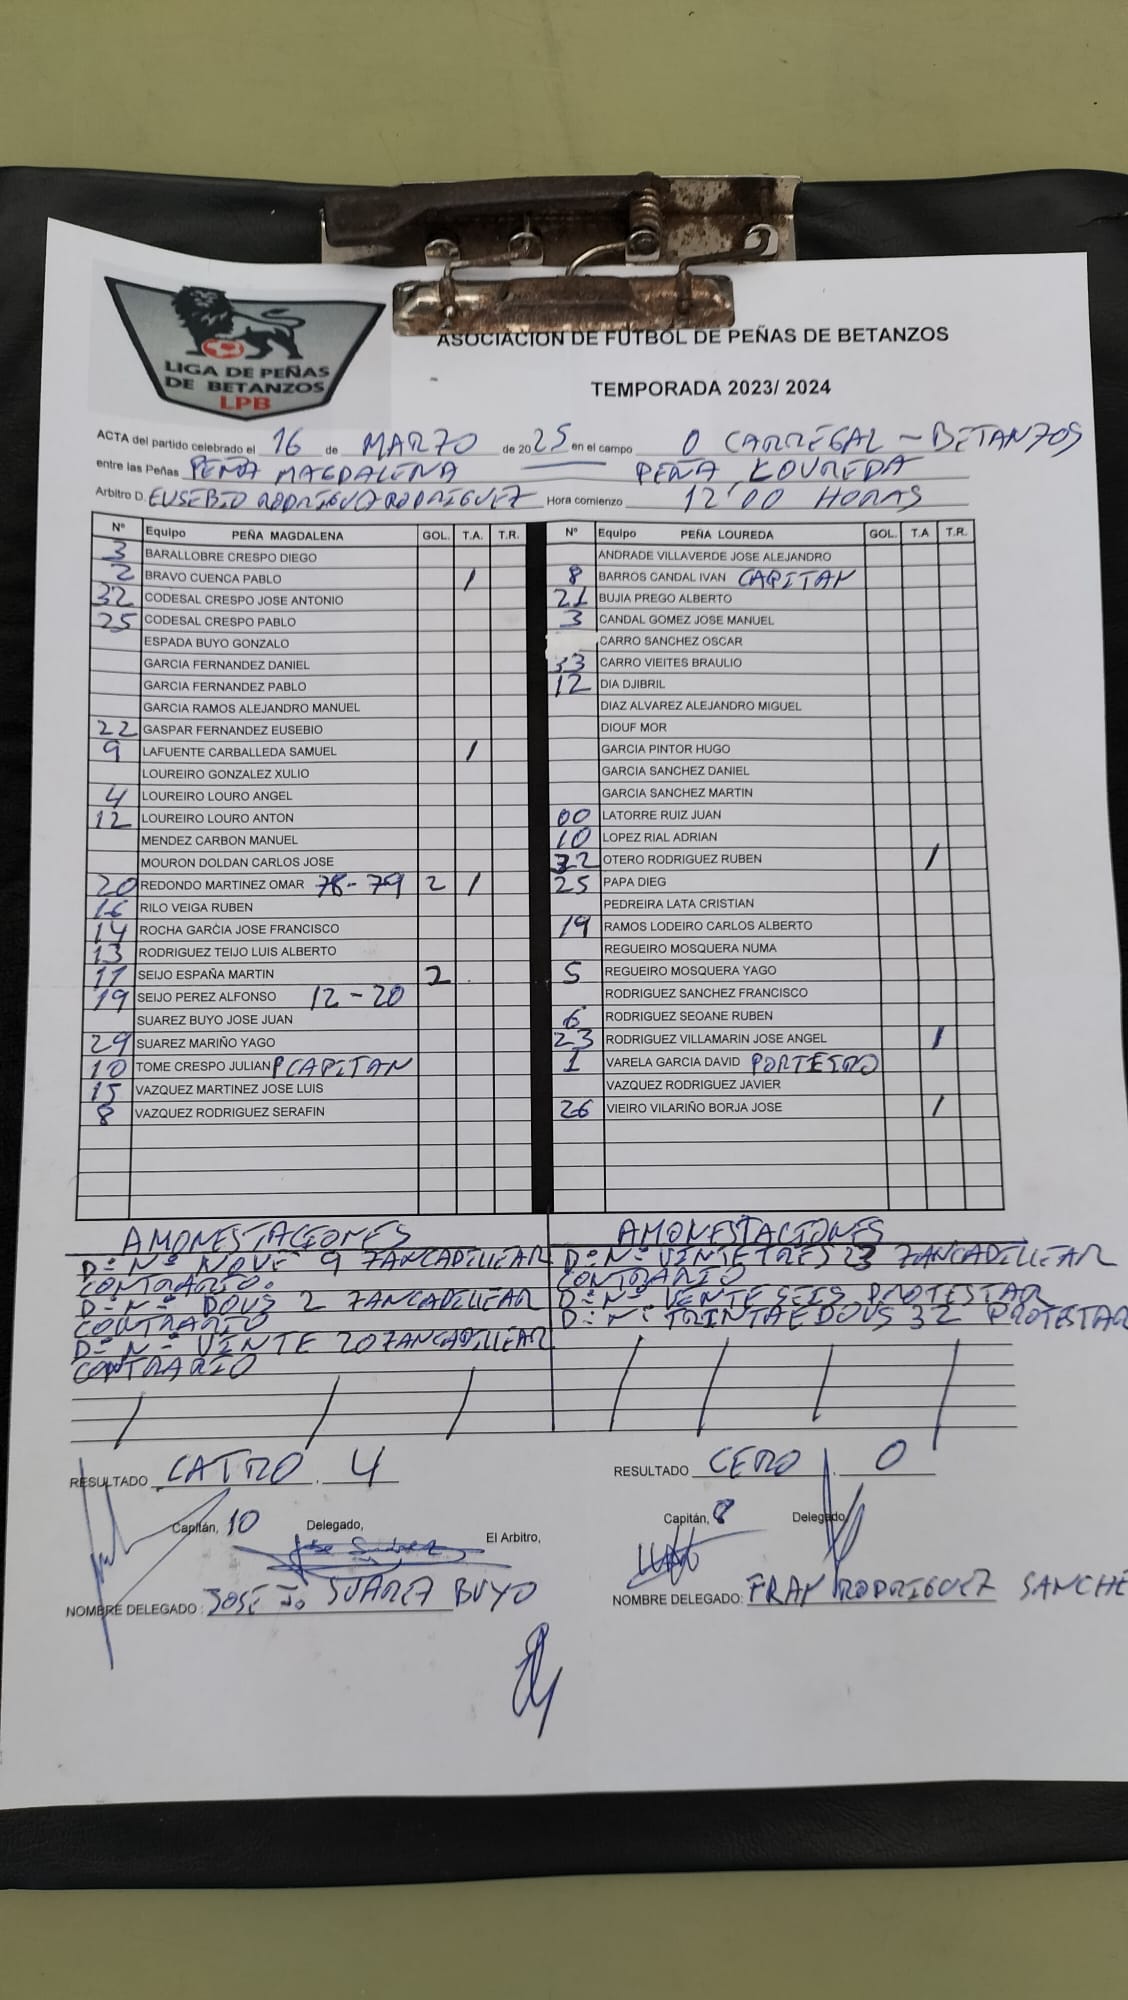 LIGA DE PEÑAS
DE BETANZOS
LPB
ASOCIACION DE FUTBOL DE PEÑAS DE BETANZOS
TEMPORADA 2023/ 2024
ACTA del partido celebrado el 16 de MARZO de 2025 en el campo O CARREGAL - BETANZOS
entre las Peñas PEÑA MAGDALENA PEÑA LOUREDA
Arbitro D. EUSEBIO RODRIGUEZ RODRIGUEZ Hora comienzo 12'00 HORAS
Nº Equipo PEÑA MAGDALENA GOL. T.A. T.R.
3 BARALLOBRE CRESPO DIEGO
2 BRAVO CUENCA PABLO /
32 CODESAL CRESPO JOSE ANTONIO
25 CODESAL CRESPO PABLO
ESPADA BUYO GONZALO
GARCIA FERNANDEZ DANIEL
GARCIA FERNANDEZ PABLO
GARCIA RAMOS ALEJANDRO MANUEL
22 GASPAR FERNANDEZ EUSEBIO
9 LAFUENTE CARBALLEDA SAMUEL /
LOUREIRO GONZALEZ XULIO
4 LOUREIRO LOURO ANGEL
12 LOUREIRO LOURO ANTON
MENDEZ CARBON MANUEL
MOURON DOLDAN CARLOS JOSE
20 REDONDO MARTINEZ OMAR 78-79 2 /
16 RILO VEIGA RUBEN
14 ROCHA GARCIA JOSE FRANCISCO
13 RODRIGUEZ TEIJO LUIS ALBERTO
17 SEIJO ESPAÑA MARTIN 2
19 SEIJO PEREZ ALFONSO 12-20
SUAREZ BUYO JOSE JUAN
29 SUAREZ MARIÑO YAGO
10 TOME CRESPO JULIAN CAPITAN
15 VAZQUEZ MARTINEZ JOSE LUIS
8 VAZQUEZ RODRIGUEZ SERAFIN
Nº Equipo PEÑA LOUREDA GOL. T.A T.R.
ANDRADE VILLAVERDE JOSE ALEJANDRO
8 BARROS CANDAL IVAN CAPITAN
21 BUJIA PREGO ALBERTO
3 CANDAL GOMEZ JOSE MANUEL
CARRO SANCHEZ OSCAR
33 CARRO VIEITES BRAULIO
12 DIA DJIBRIL
DIAZ ALVAREZ ALEJANDRO MIGUEL
DIOUF MOR
GARCIA PINTOR HUGO
GARCIA SANCHEZ DANIEL
GARCIA SANCHEZ MARTIN
00 LATORRE RUIZ JUAN
10 LOPEZ RIAL ADRIAN
32 OTERO RODRIGUEZ RUBEN /
25 PAPA DIEG
PEDREIRA LATA CRISTIAN
19 RAMOS LODEIRO CARLOS ALBERTO
REGUEIRO MOSQUERA NUMA
5 REGUEIRO MOSQUERA YAGO
RODRIGUEZ SANCHEZ FRANCISCO
6 RODRIGUEZ SEOANE RUBEN
23 RODRIGUEZ VILLAMARIN JOSE ANGEL /
1 VARELA GARCIA DAVID PORTEIRO
VAZQUEZ RODRIGUEZ JAVIER
26 VIEIRO VILARIÑO BORJA JOSE /
AMONESTACIONES
D= Nº NOVE 9 ZANCADILLEAR
CONTRARIO.
D= Nº DOUS 2 ZANCADILLEAR
CONTRARIO
D= Nº VINTE 20 ZANCADILLEAR
CONTRARIO
AMONESTACIONES
D= Nº VINTE TRES 23 ZANCADILLEAR
CONTRARIO
D= Nº VENTE SEIS PROTESTAR
D= Nº TRINTA E DOUS 32 PROTESTAR
RESULTADO CATRO 4
RESULTADO CERO 0
Capitán, 10 Delegado, El Arbitro,
Capitán, 8 Delegado,
Jose Suárez
NOMBRE DELEGADO : JOSÉ Jº SUAREZ BUYO
NOMBRE DELEGADO: FRAN RODRIGUEZ SANCHE